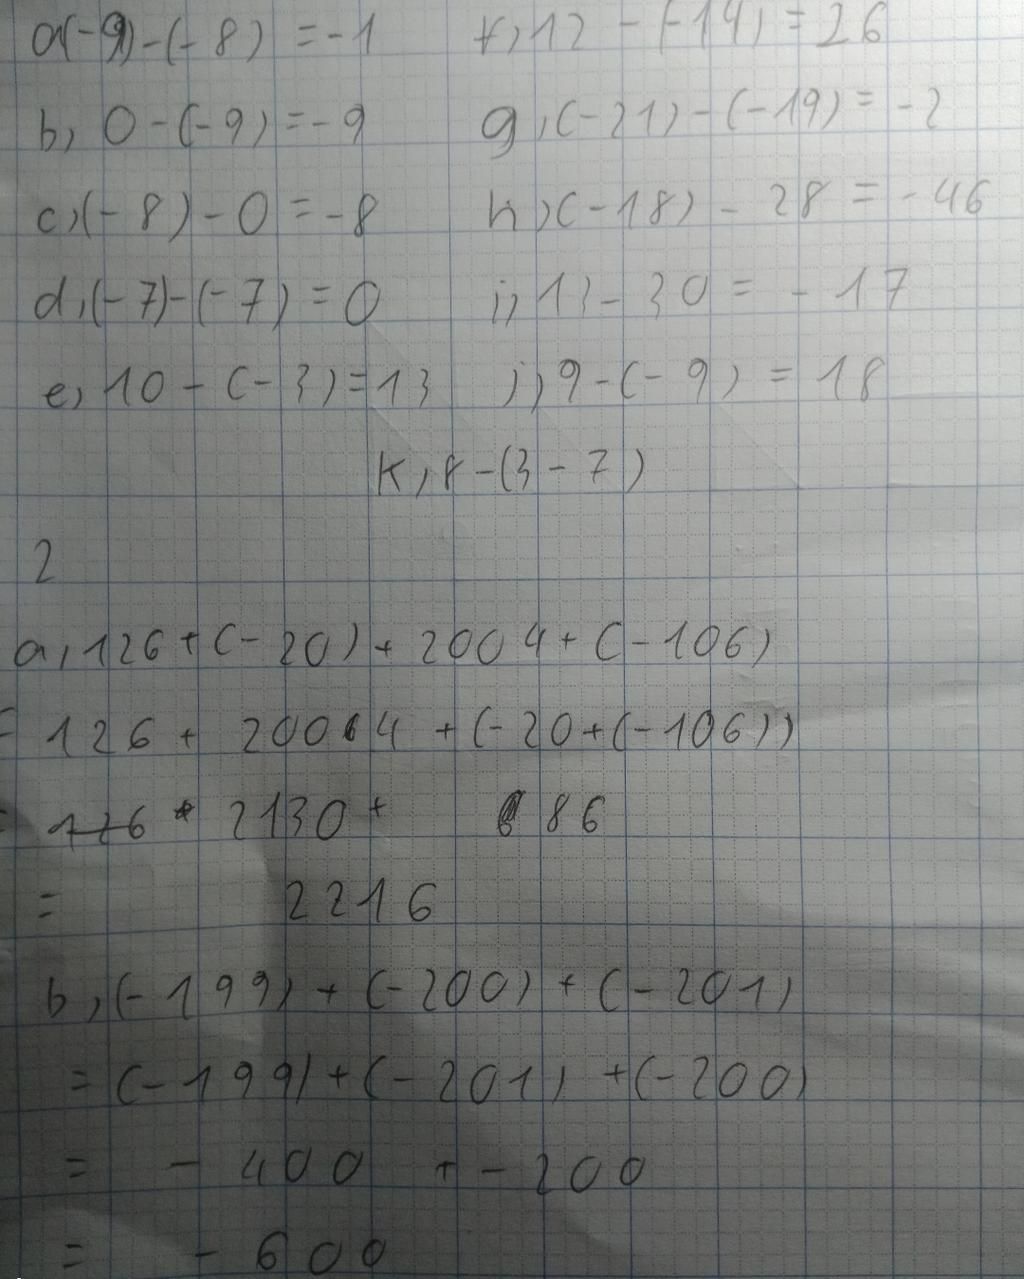 a(-9)-(-8) = -1
f, 12 - (-14) = 26
b, 0 - (-9) = -9
g, (-21) - (-19) = -2
c, (-8) - 0 = -8
h, (-18) - 28 = -46
d, (-7) - (-7) = 0
i, 13 - 30 = -17
e, 10 - (-3) = 13
j, 9 - (-9) = 18
k, 8 - (3 - 7)
2
a, 126 + (-20) + 2004 + (-106)
= 126 + 2004 + (-20 + (-106))
= 126 + 2130 + 86
= 2216
b, (-199) + (-200) + (-201)
= (-199) + (-201) + (-200)
= - 400 + - 200
= - 600